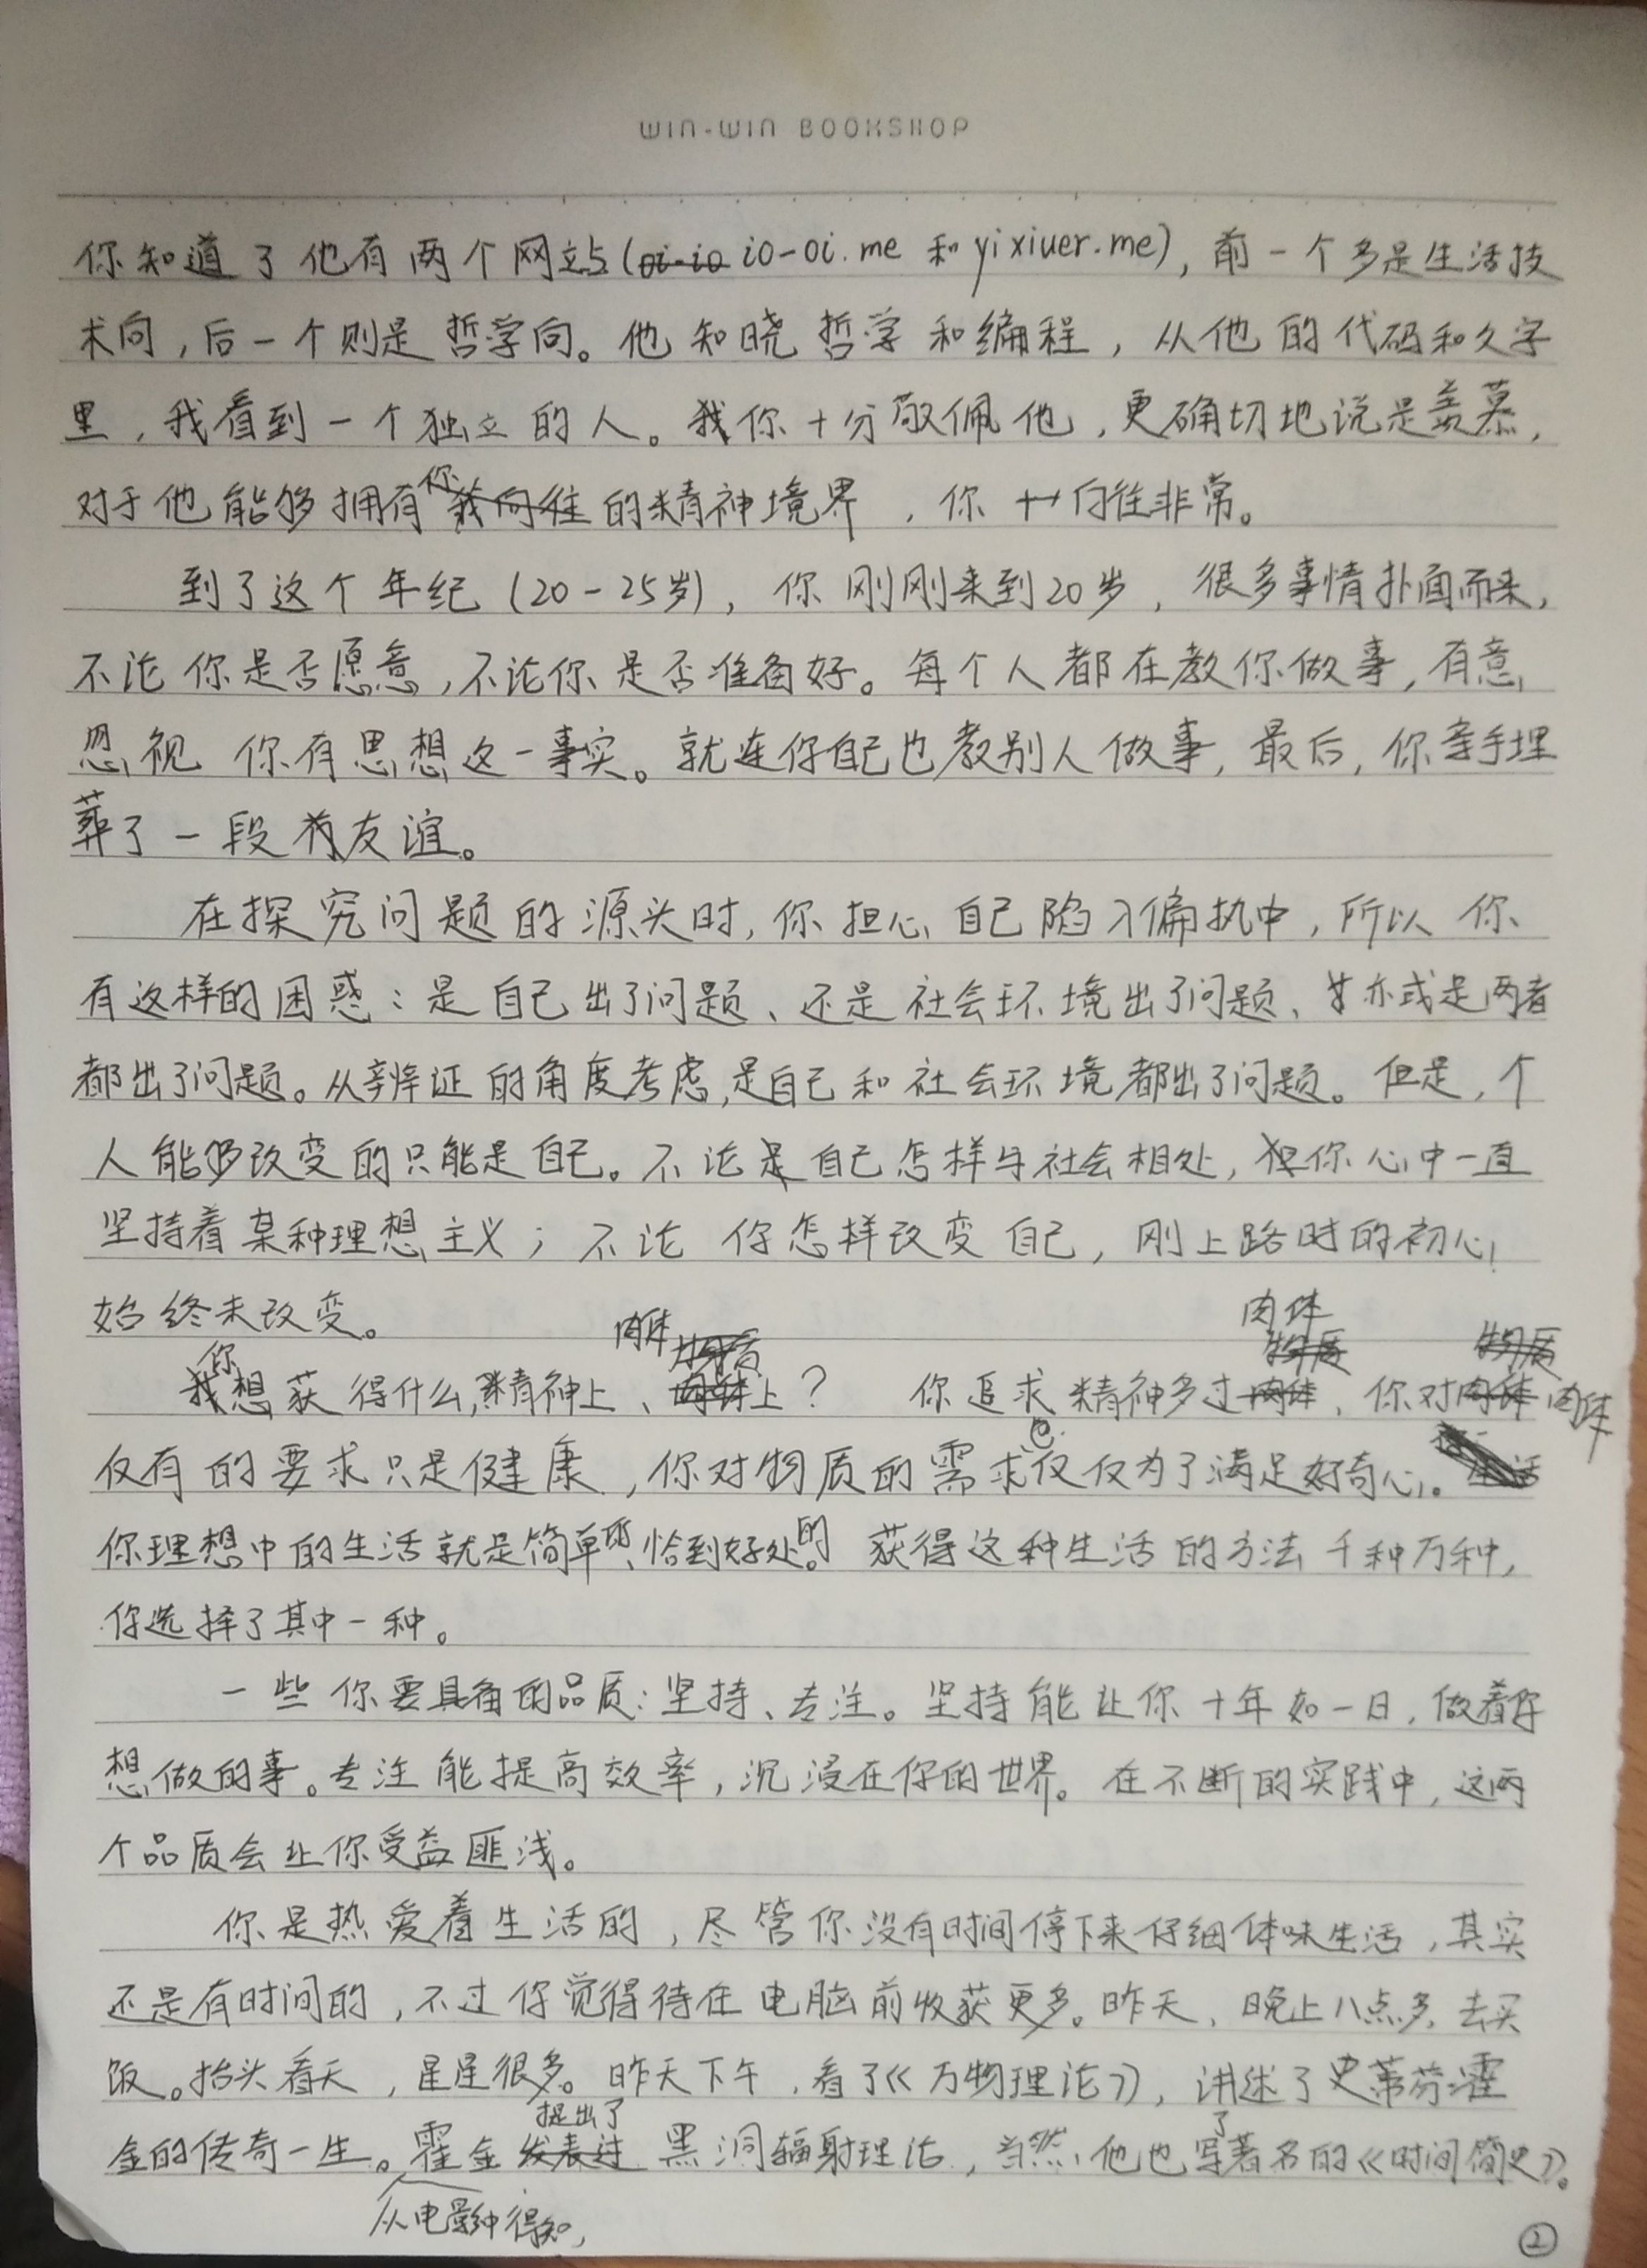 WIN-WIN BOOKSHOP
你知道了他有两个网站(oi-io io-oi.me 和 yixiuer.me), 前一个多是生活技
术向，后一个则是哲学向。他知晓哲学和编程，从他的代码和文字
里，我看到一个独立的人。我你十分敬佩他，更确切地说是羡慕，
对于他能够拥有你我向往的精神境界，你十向往非常。
到了这个年纪(20-25岁)，你刚刚来到20岁，很多事情扑面而来，
不论你是否愿意，不论你是否准备好。每个人都在教你做事，有意
忽视你有思想这一事实。就连你自己也教别人做事，最后，你亲手埋
葬了一段有友谊。
在探究问题的源头时，你担心自己陷入偏执中，所以你
有这样的困惑：是自己出了问题、还是社会环境出了问题、亦或是两者
都出了问题。从辨证的角度考虑，是自己和社会环境都出了问题。但是，个
人能够改变的只能是自己。不论是自己怎样与社会相处，你心中一直
坚持着某种理想主义；不论你怎样改变自己，刚上路时的初心
始终未改变。
肉体 物质 肉体 物质 物质
我你想获得什么，精神上、肉体上？ 你追求精神多过肉体，你对肉体肉体
仅有的要求只是健康，你对物质的需求仅仅为了满足好奇心。生活
你理想中的生活就是简单的、恰到好处的。获得这种生活的方法千种万种，
你选择了其中一种。
一些你要具备的品质：坚持、专注。坚持能让你十年如一日，做着你
想做的事。专注能提高效率，沉浸在你的世界。在不断的实践中，这两
个品质会让你受益匪浅。
你是热爱着生活的，尽管你没有时间停下来仔细体味生活，其实
还是有时间的，不过你觉得待在电脑前收获更多。昨天，晚上八点多，去买
饭。抬头看天，星星很多。昨天下午，看了《万物理论》，讲述了史蒂芬·霍
提出了 了
金的传奇一生。霍金发表过黑洞辐射理论，当然，他也写著名的《时间简史》。
从电影中得知，
②